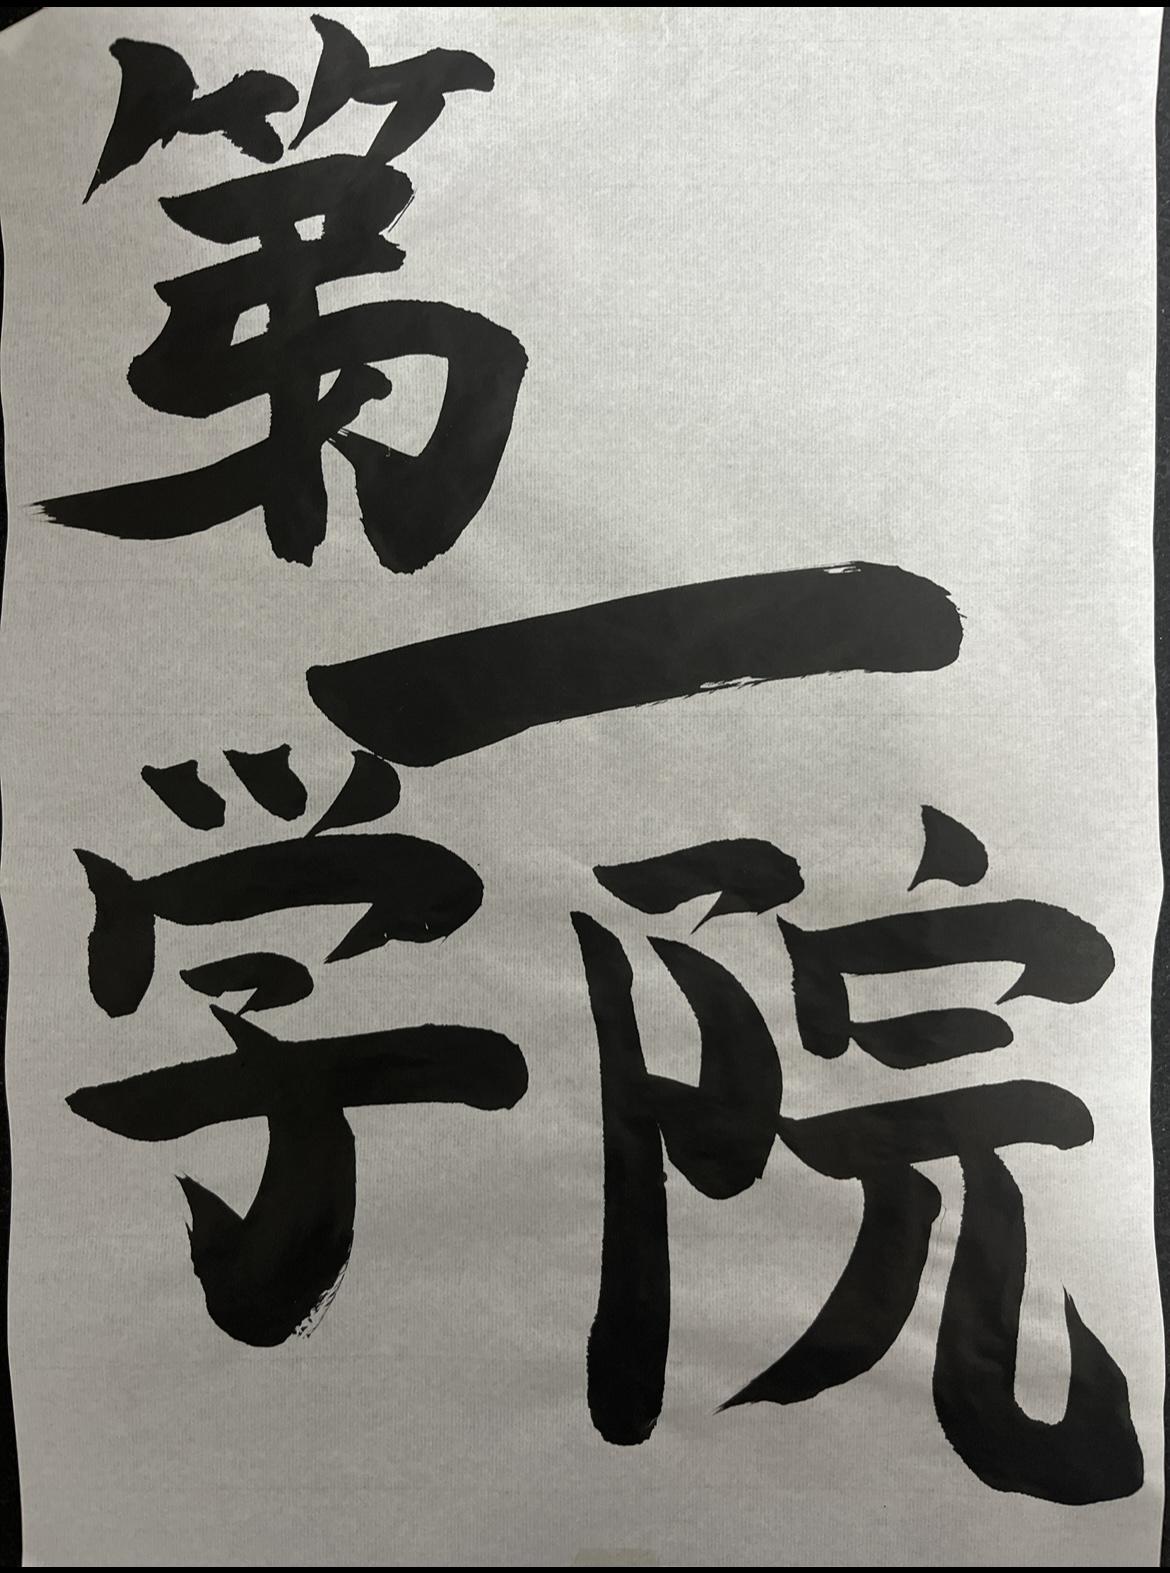 第一
学院